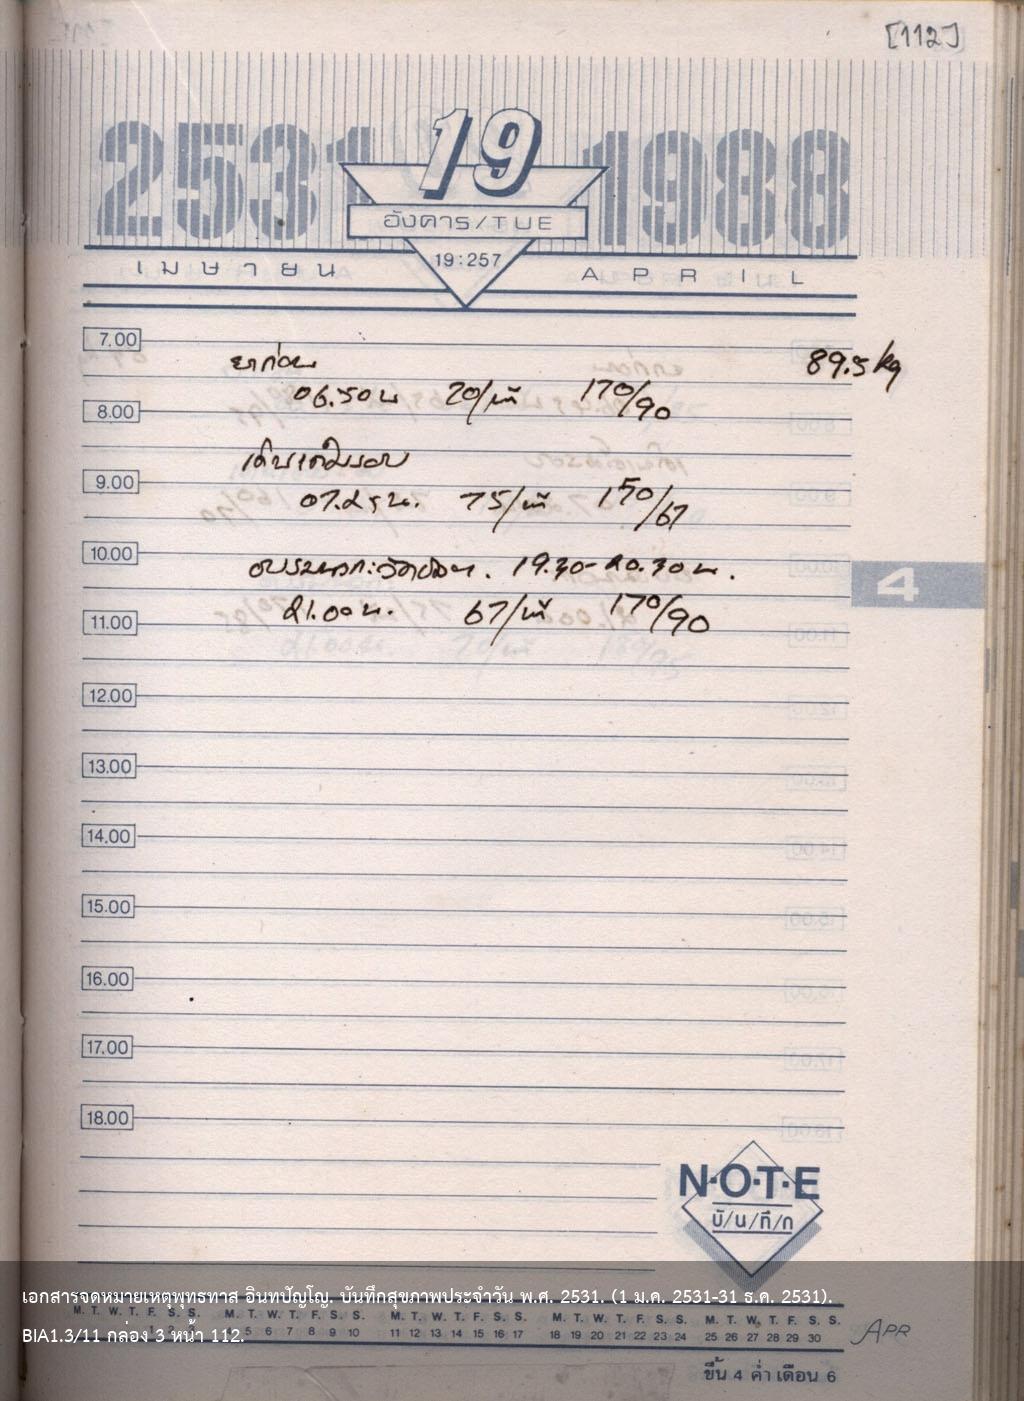 [112]
2531 19 1988
อังคาร/TUE
19:257
เมษายน APRIL
7.00
ยาก่อน 89.5 kg
06.50 น 70/นที 170/90
8.00
เดินเต็มรอบ
9.00
07.25 น. 75/นที 150/67
10.00
อบรมพระวัดชลฯ. 19.30-20.30 น.
4
21.00 น. 67/นที 170/90
11.00
12.00
13.00
14.00
15.00
16.00
17.00
18.00
N·O·T·E
บั/น/ทึ/ก
เอกสารจดหมายเหตุพุทธทาส อินทปัญโญ. บันทึกสุขภาพประจำวัน พ.ศ. 2531. (1 ม.ค. 2531-31 ธ.ค. 2531).
M. T. W. T. F. S. S. M. T. W. T. F. S. S. M. T. W. T. F. S. S. M. T. W. T. F. S. S. M. T. W. T. F. S. S.
5 6 7 8 9 10 11 12 13 14 15 16 17 18 19 20 21 22 23 24 25 26 27 28 29 30 APR
BIA1.3/11 กล่อง 3 หน้า 112.
ขึ้น 4 ค่ำ เดือน 6